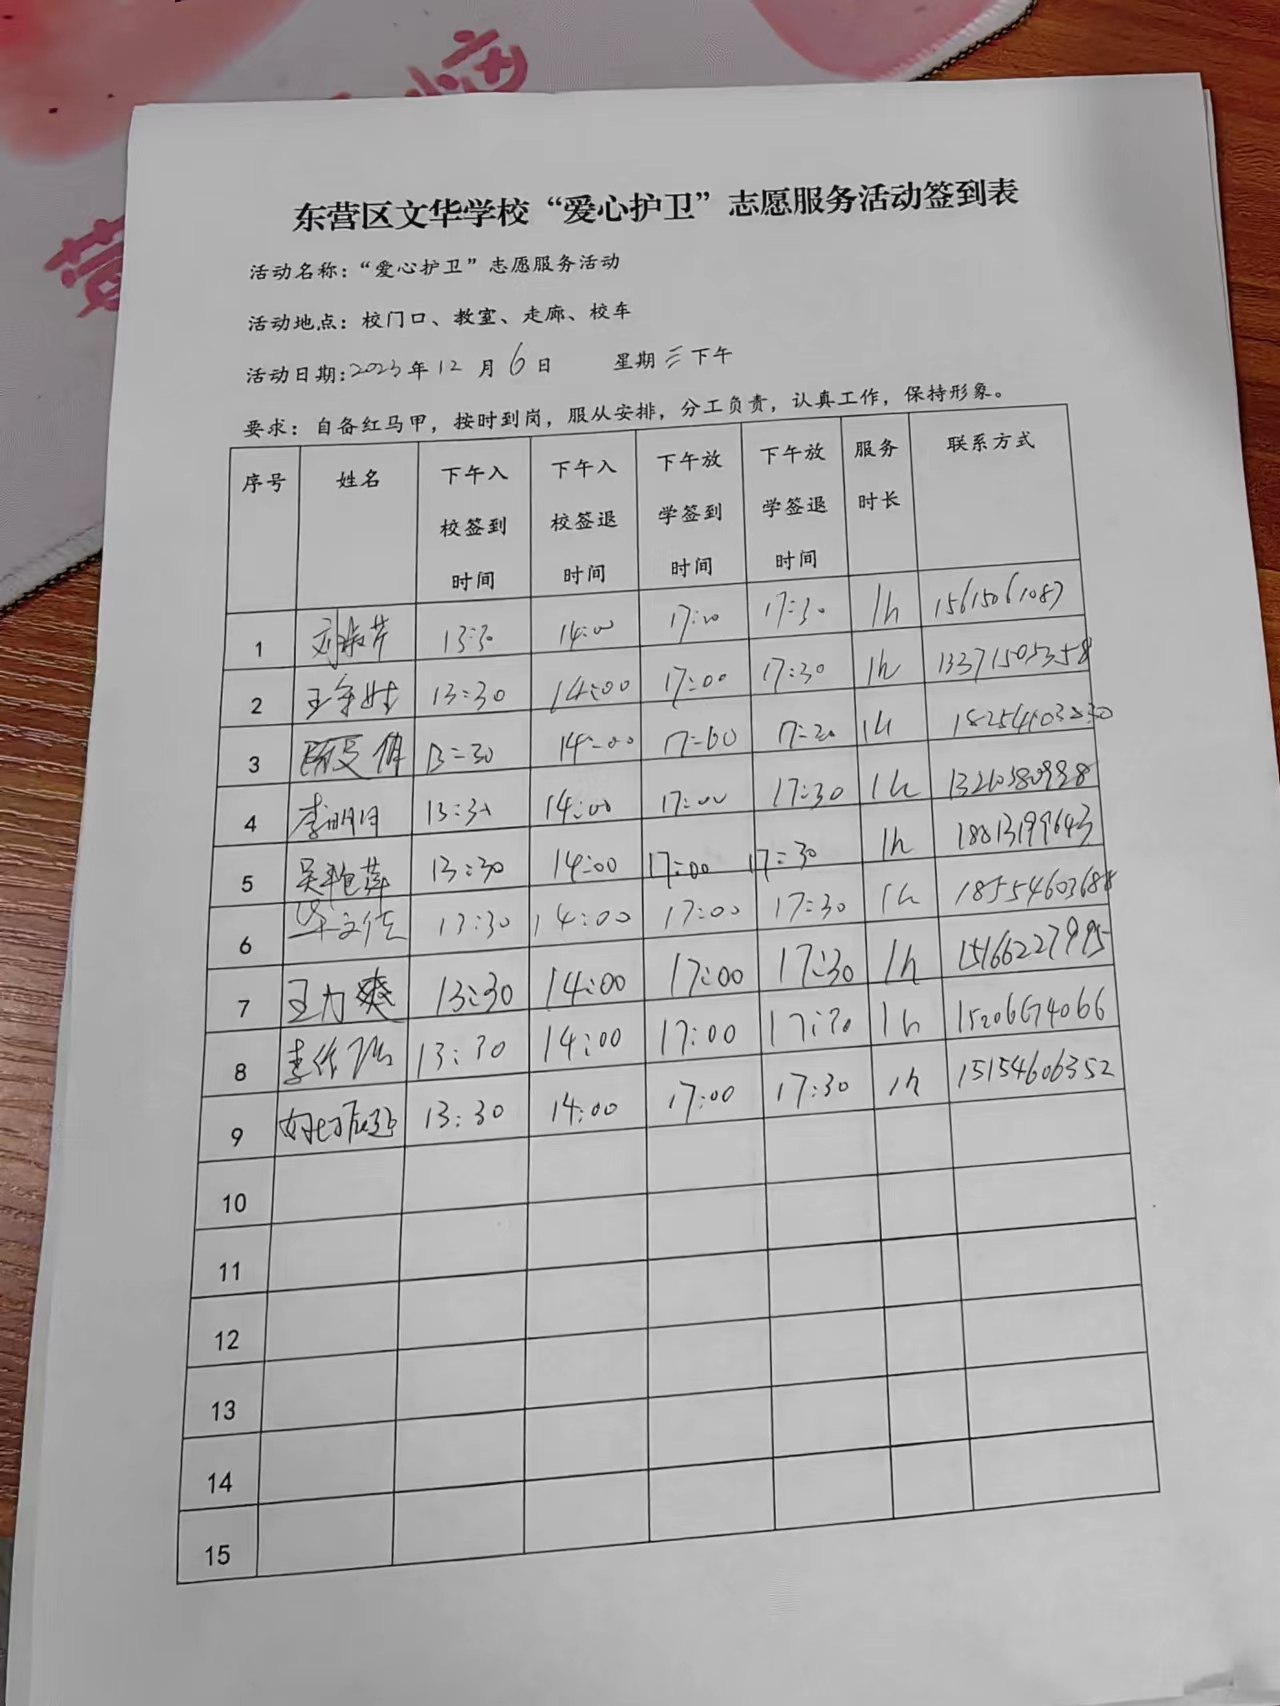 东营区文华学校“爱心护卫”志愿服务活动签到表
活动名称：“爱心护卫”志愿服务活动
活动地点：校门口、教室、走廊、校车
活动日期：2023年12月6日 星期三下午
要求：自备红马甲，按时到岗，服从安排，分工负责，认真工作，保持形象。
序号 姓名 下午入校签到时间 下午入校签退时间 下午放学签到时间 下午放学签退时间 服务时长 联系方式
1 13:30 14:00 17:00 17:30 1h 15615061087
2 13:30 14:00 17:00 17:30 1h 13371505358
3 13=30 14-00 17=00 1h
4 李明月 13:30 14:00 17:00 17:30 1h
5 吴艳萍 13:30 14:00 17:00 17:30 1h
6 毕文佳 13:30 14:00 17:00 17:30 1h 18554603688
7 王力爽 13:30 14:00 17:00 17:30 1h 15166227995
8 13:30 14:00 17:00 17:30 1h 15206674066
9 13:30 14:00 17:00 17:30 1h 15154606352
10
11
12
13
14
15